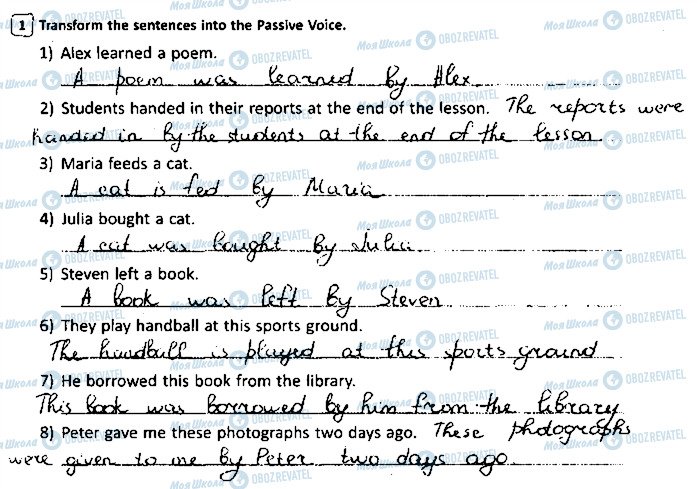 1 Transform the sentences into the Passive Voice.
1) Alex learned a poem.
A poem was learned by Alex
2) Students handed in their reports at the end of the lesson. The reports were
handed in by the students at the end of the lesson.
3) Maria feeds a cat.
A cat is fed by Maria
4) Julia bought a cat.
A cat was bought by Julia
5) Steven left a book.
A book was left by Steven
6) They play handball at this sports ground.
The handball is played at this sports ground
7) He borrowed this book from the library.
This book was borrowed by him from the library
8) Peter gave me these photographs two days ago. These photographs
were given to me by Peter two days ago.
Моя Школа OBOZREVATEL